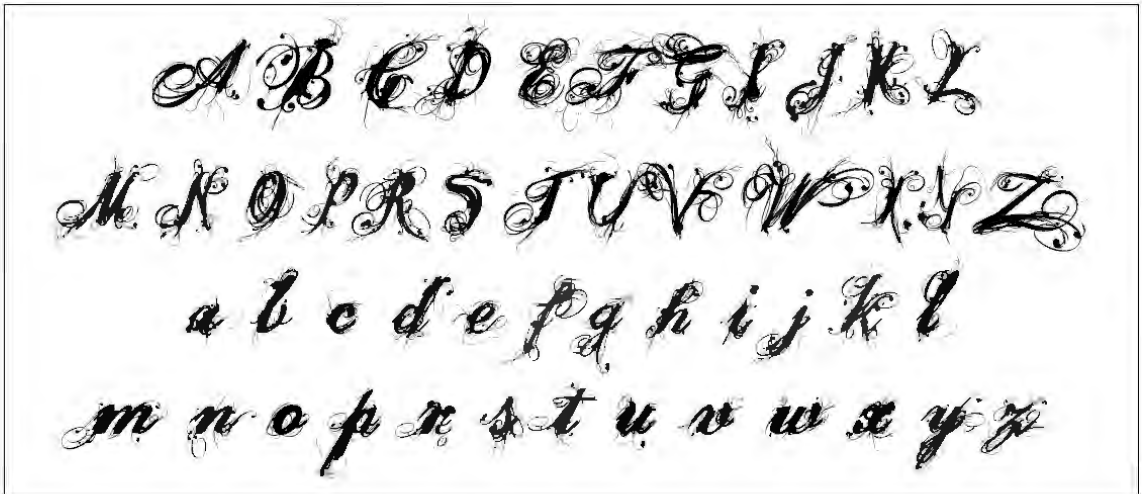 A B C D E F G I J K L
M N O P R S T U V W X Y Z
a b c d e f g h i j k l
m n o p r s t u v w x y z